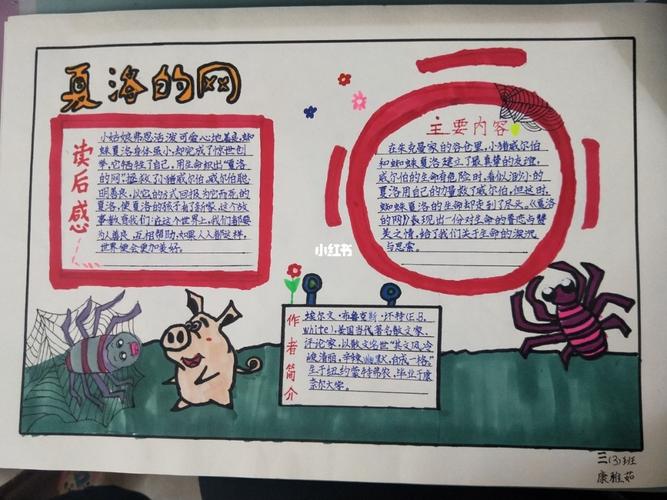 夏洛的网
读后感
小姑娘弗恩活泼可爱心地善良,蜘
蛛夏洛身体虽小,却完成了惊世创
举,它牺牲了自己,用生命织出“夏洛
的网”,拯救了小猪威尔伯,威尔伯聪
明善良,以它的方式回报为它而死的
夏洛,使夏洛的孩子有了新家,这个故
事教育我们:在这个世界上,我们都要
为人善良,互相帮助,如果人人都这样,
世界便会更加美好。
主要内容
在朱克曼家的谷仓里,小猪威尔伯
和蜘蛛夏洛建立了最真挚的友谊,
威尔伯的生命有危险时,看似渺小的
夏洛用自己的力量救了威尔伯,但这时,
蜘蛛夏洛的生命却走到了尽头。《夏洛
的网》表现出一份对生命的眷恋与赞
美之情,给了我们关于生命的深沉
与思索。
小红书
作者简介
埃尔文·布鲁克斯·怀特(E.B.
White),美国当代著名散文家、
评论家,以散文名世“其文风冷
峻清丽,辛辣幽默,自成一格。”
生于纽约蒙特弗农,毕业于康
奈尔大学。
三(3)班
康雅茹